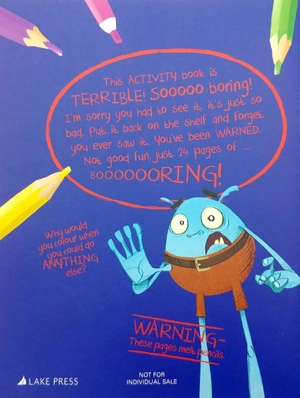 This ACTIVITY book is
TERRIBLE! Sooooo boring!
I'm sorry you had to see it, it's just so
bad. Put it back on the shelf and forget
you ever saw it. You've been WARNED.
Not good fun, just 24 pages of ...
BOOOOOORING!
Why would
you colour when
you could do
ANYTHING
else?
WARNING-
These pages melt pencils.
LAKE PRESS
NOT FOR
INDIVIDUAL SALE